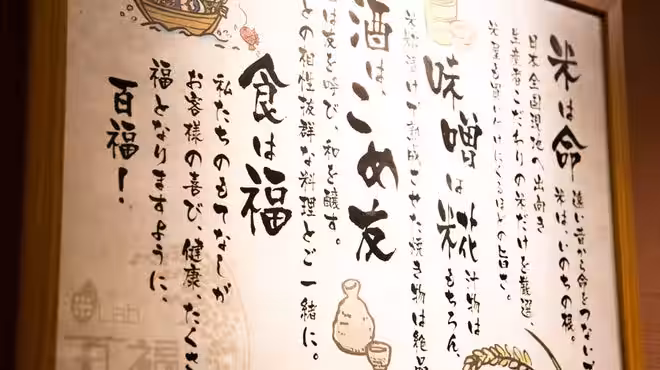 米は命
遠い昔から命をつないで
米は、いのちの根。
日本全国現地へ出向き
生産者こだわりの米だけを厳選、
米屋も
ほどの旨さ。
味噌は糀
汁物はもちろん、
米糀漬けで熟成させた焼き物は絶品
酒は、こめ友
は友を呼び、和を醸す。
との相性抜群な料理とご一緒に。
食は福
私たちのもてなしが
お客様の喜び、健康、たくさ
福となりますように、
百福！
Lab
百福